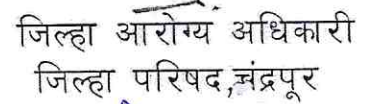 जिल्हा आरोग्य अधिकारी
जिल्हा परिषद,चंद्रपूर